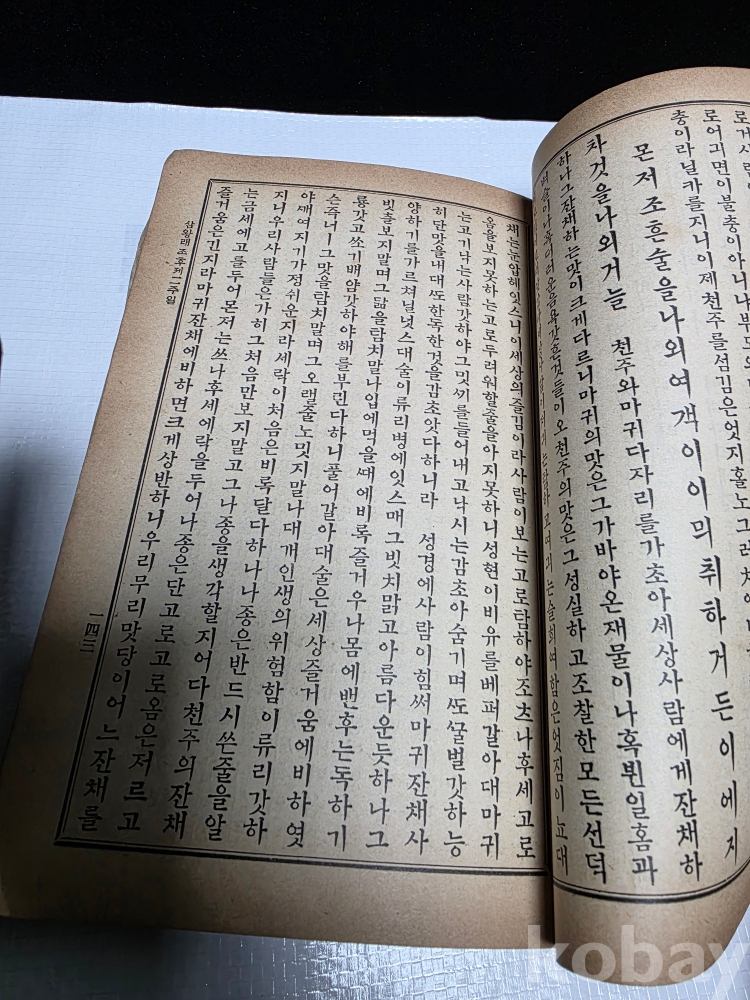 로어긔면이불충이아니나부도
충이라닐카를지니이제천주를섬김은엇지홀노그러치
몬저조흔술을나외여객이이믜취하거든이에지
차것을나외거늘 천주와마귀다자리를가초아세상사람에게잔채하
하나그잔채하는맛이크게다르니마귀의맛은그가바야온재물이나혹뷘일홈과
오천주의맛은그성실하고조찰한모든선덕
는슬희여함은엇짐이뇨대
채는눈압헤잇스니이세상의즐김이라사람이보는고로탐하야조츠나후세고로
옴을보지못하는고로두려워할줄을아지못하니성현이비유를베퍼갈아대마귀
는고기낙는사람갓하야그밋끼를들어내고낙시는감초아숨기며또꿀벌갓하능
히단맛을내대또한독한것을감초앗다하니라 성경에사람이힘써마귀잔채사
양하기를가르쳐닐넛스대술이류리병에잇스매그빗치맑고아름다운듯하나그
빗츨보지말며그닯을탐치말나입에먹을때에비록즐거우나몸에밴후는독하기
룡갓고쏘기배얌갓하야해를부린다하니풀어갈아대술은세상즐거움에비하엿
슨즉너ㅣ그맛을탐치말며그오랠줄노밋지말나대개인생의위험함이류리갓하
야깨여지기가정쉬운지라세락이처음은비록달다하나나종은반드시쓴줄을알
지니우리사람들은가히그처음만보지말고그나종을생각할지어다천주의잔채
는금세에고를두어몬저는쓰나후세에락을두어나종은단고로고로옴은저르고
즐거움은긴지라마귀잔채에비하면크게상반하니우리무리맛당이어느잔채를
삼왕래조후제二주일
一四三
kobay